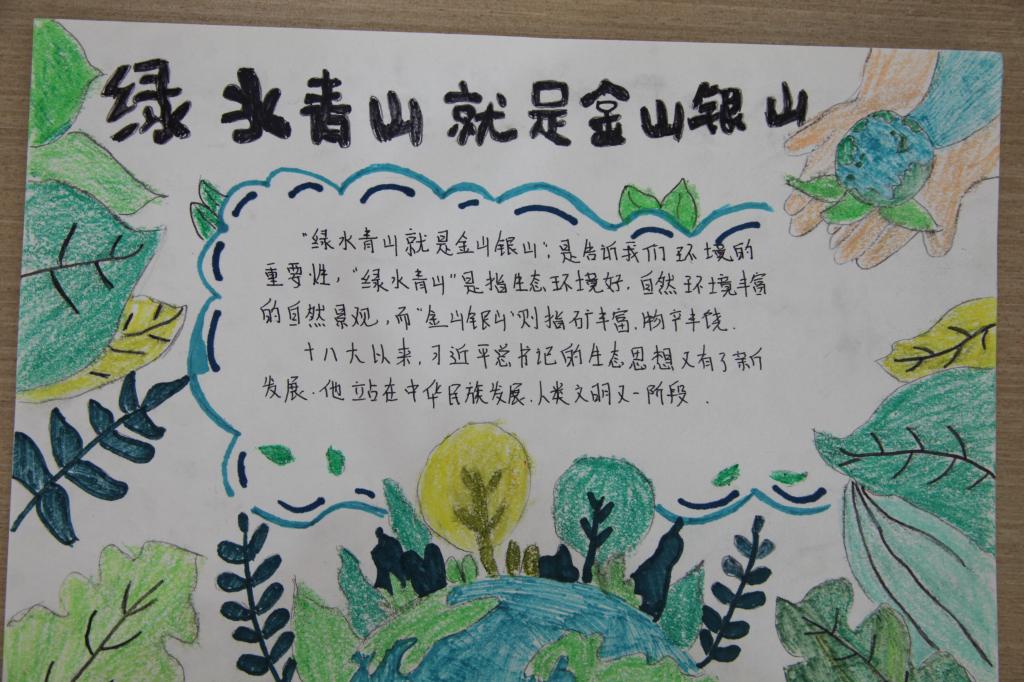 绿水青山就是金山银山
“绿水青山就是金山银山”,是告诉我们环境的
重要性,“绿水青山”是指生态环境好.自然环境丰富
的自然景观,而“金山银山”则指矿丰富.物产丰饶.
十八大以来,习近平总书记的生态思想又有了新
发展.他立站在中华民族发展.人类文明又一阶段.